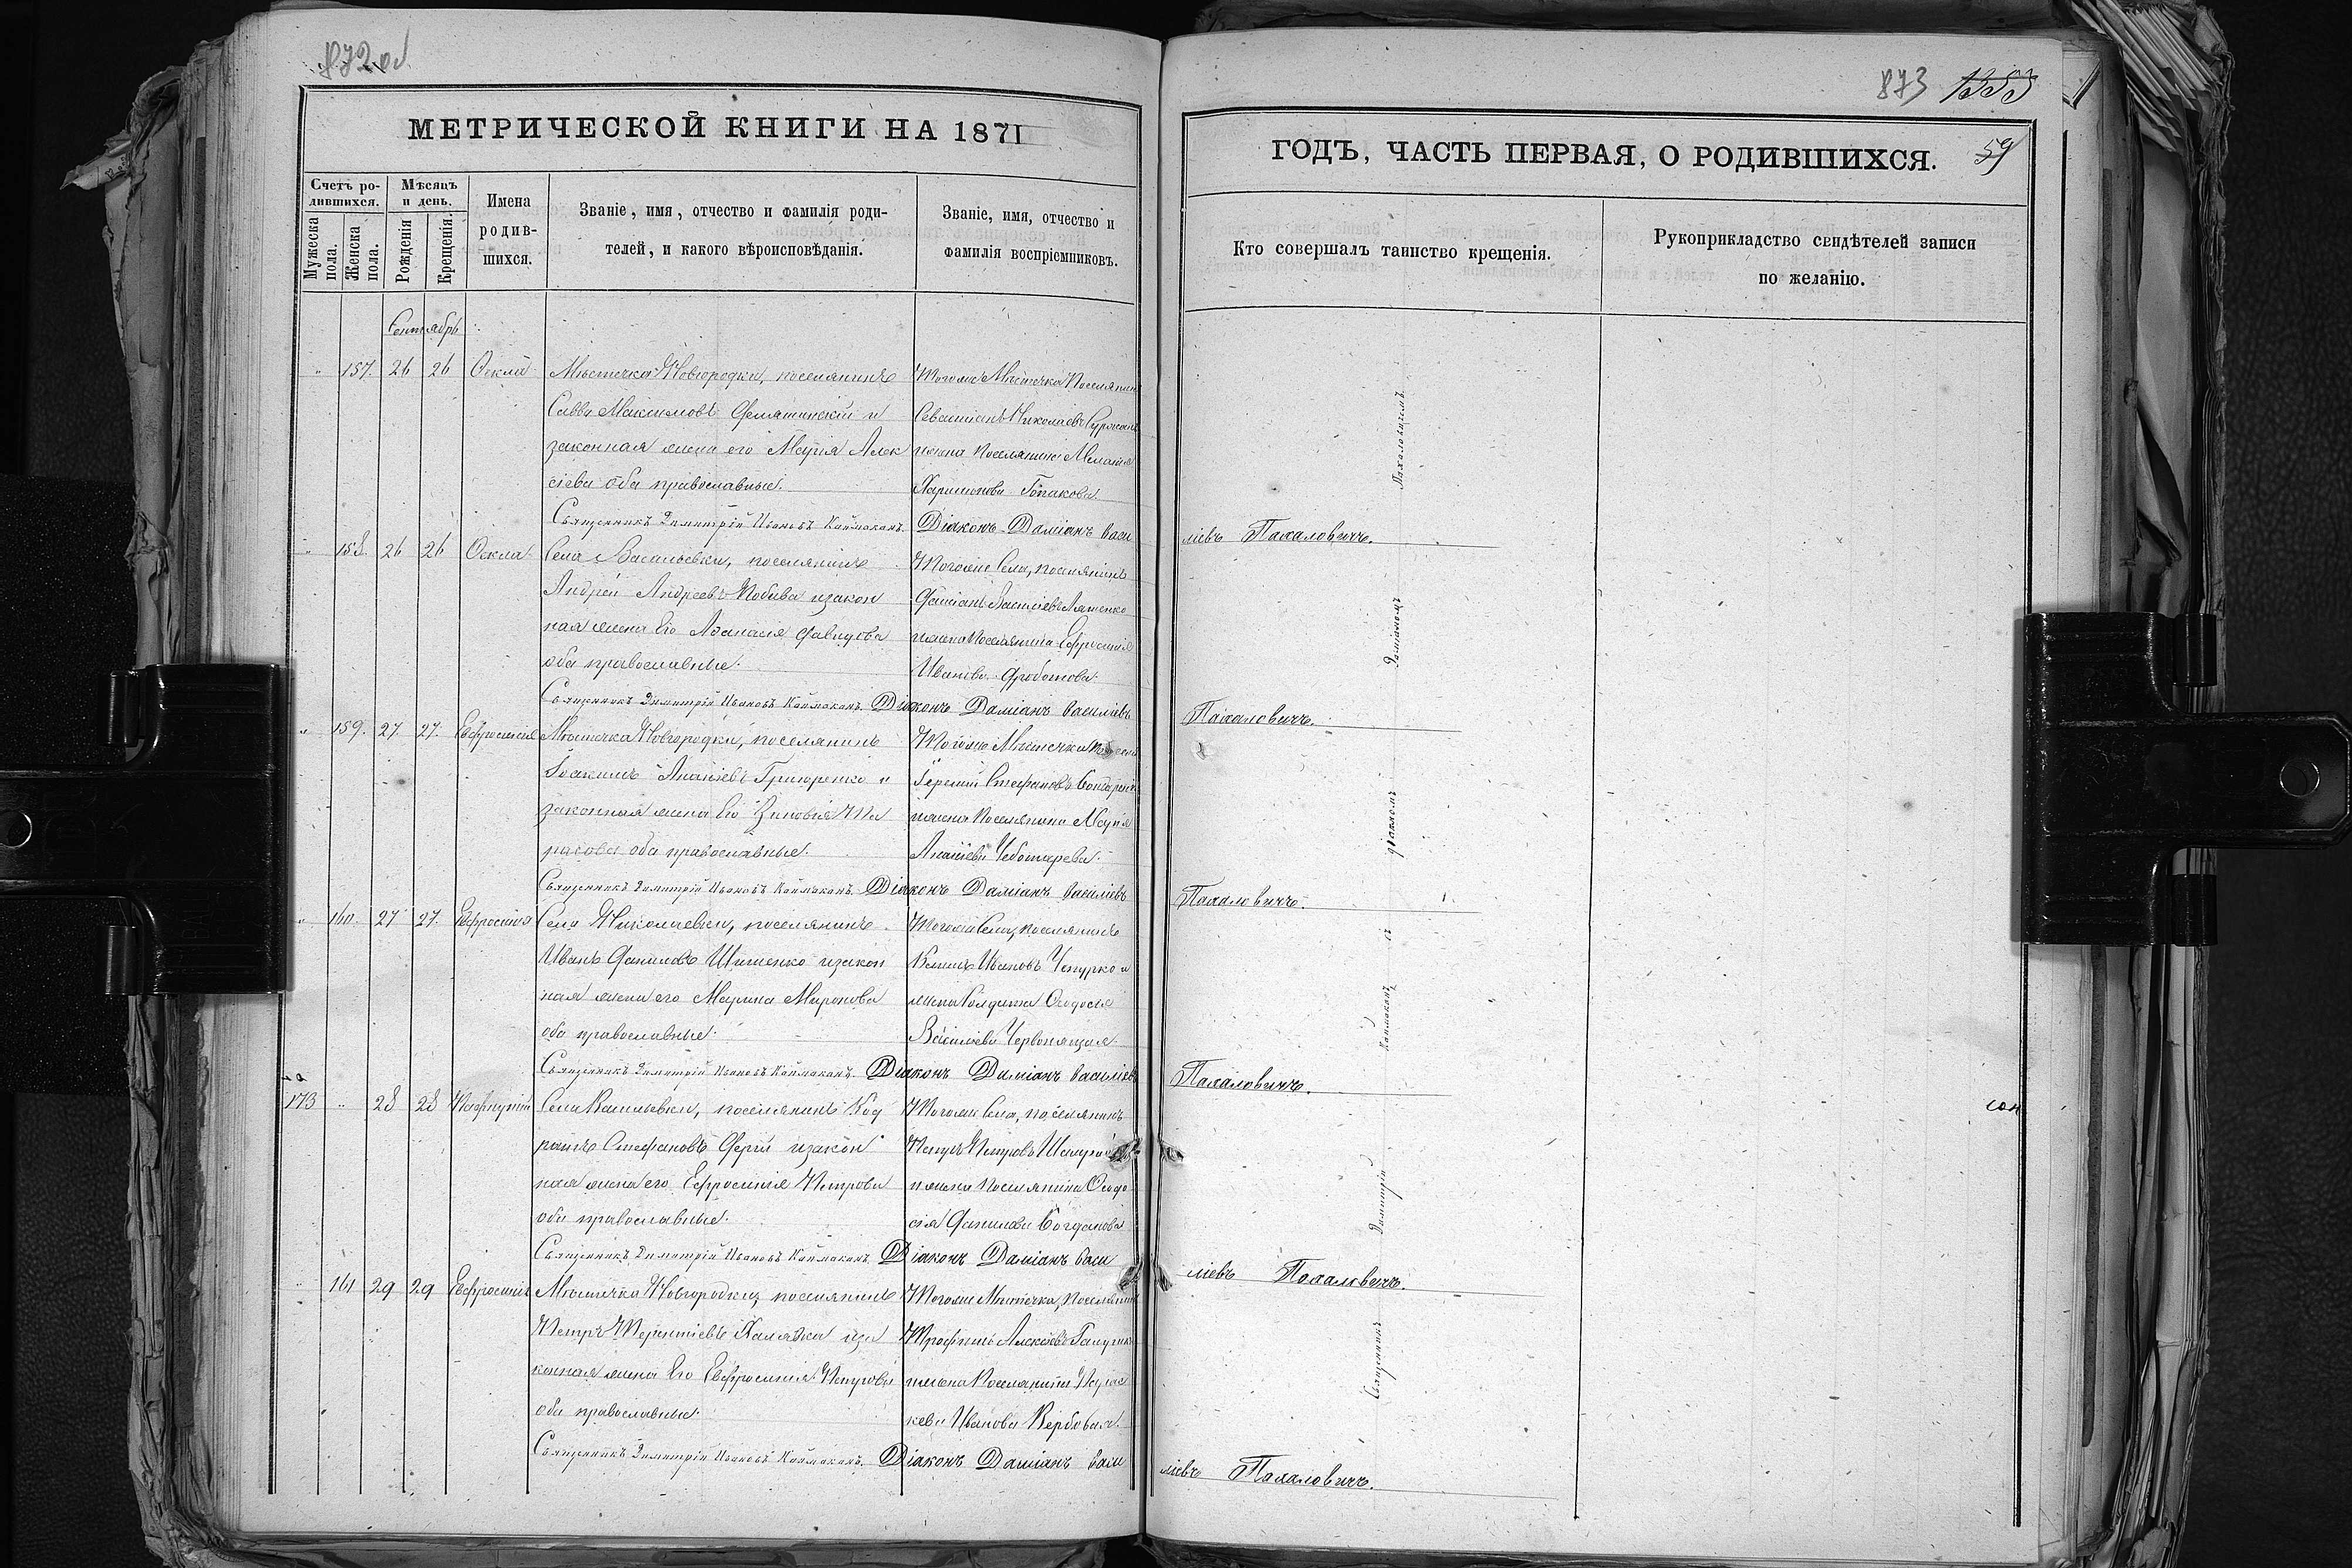 872 об
МЕТРИЧЕСКОЙ КНИГИ НА 1871
Счетъ ро-
дившихся.
Мужеска пола.
Женска пола.
Мѣсяцъ
и день.
Рожденія
Крещенія.
Имена
родив-
шихся.
Званіе, имя, отчество и фамилія роди-
телей, и какого вѣроисповѣданія.
Званіе, имя, отчество и
фамилія воспріемниковъ.
Сентябрь
157. 26 26 Ѳекла Мѣстечка Новгородки, поселянинъ
Савва Максимовъ и
законная жена его Марія Алек
сіева оба православные.
Священникъ Димитрій Ивановъ Каймаканъ.
Тогоже Мѣстечка Поселянин
Севастіанъ Николаевъ
и жена Поселянина Меланія
Харитонова
Діаконъ Даміанъ Васи
158 26 26 Ѳекла Села Васильевки, поселянинъ
Андрей Андреевъ и закон
ная жена Его Аѳанасія Давидова
оба православные.
Священникъ Димитрій Ивановъ Каймаканъ.
Тогоже Села, поселянинъ
Василіевъ Ляшенко
и жена Поселянина Ефросинія
Иванова
Діаконъ Даміанъ Василіевъ
159. 27 27. Евфросинія Мѣстечка Новгородки, поселянинъ
Іоакимъ Ананіевъ Григоренко и
законная жена Его Зиновія Та
расова оба православные.
Священникъ Димитрій Ивановъ Каймаканъ.
Тогоже Мѣстечка
Стефановъ
и жена Поселянина Марія
Ананіева Чеботарева
Діаконъ Даміанъ Василіевъ
160. 27 27. Евфросинія Села Николаевки, поселянинъ
Иванъ Даниловъ Шишенко и закон
ная жена его Марина Миронова
оба православные.
Священникъ Димитрій Ивановъ Каймаканъ.
Тогоже Села, поселянинъ
Ивановъ Чепурко и
жена Солдата Ѳеодосія
Василіева
Діаконъ Даміанъ Василіевъ
173 28 28 Пафнутій Села Васильевки, поселянинъ Код
ратъ Стефановъ и закон
ная жена его Ефросинія Петрова
оба православные.
Священникъ Димитрій Ивановъ Каймаканъ.
Тогоже Села, поселянинъ
Петръ Петровъ
и жена Поселянина Ѳеодо
сія Данилова Богданова
Діаконъ Даміанъ Васи
161 29 29 Евфросинія Мѣстечка Новгородки, поселянинъ
Петръ Терентіевъ и за
конная жена Его Евфросинія Петрова
оба православные.
Священникъ Димитрій Ивановъ Каймаканъ.
Тогоже Мѣстечка, Поселянинъ
Трофимъ Алексіевъ
и жена Поселянина Парас
кева Иванова Вербовая.
Діаконъ Даміанъ Васи
873 1353
ГОДЪ, ЧАСТЬ ПЕРВАЯ, О РОДИВШИХСЯ. 59
Кто совершалъ таинство крещенія.
Рукоприкладство свидѣтелей записи
по желанію.
Священникъ Димитрій Каймаканъ съ діакономъ Даміаномъ Пахаловичемъ.
ліевъ Пахаловичъ.
Пахаловичъ.
Пахаловичъ.
Пахаловичъ.
ліевъ Пахаловичъ.
ліевъ Пахаловичъ.